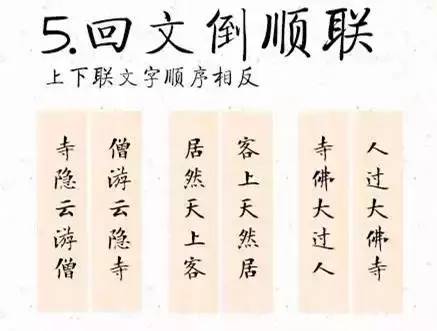 5.回文倒顺联
上下联文字顺序相反
人过大佛寺
寺佛大过人
客上天然居
居然天上客
僧游云隐寺
寺隐云游僧